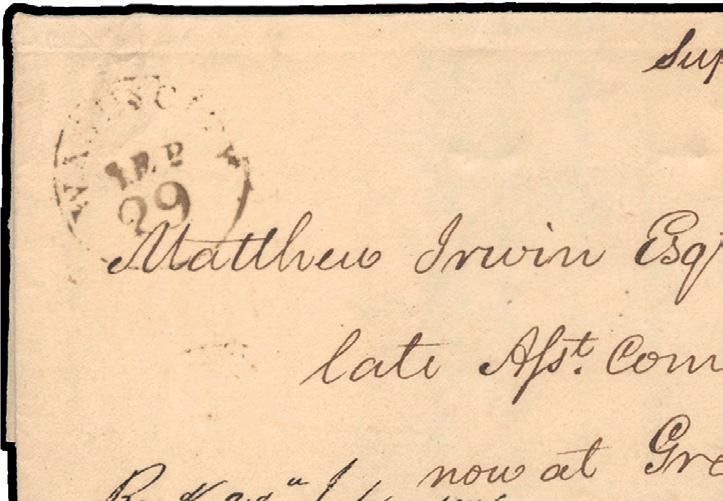 Sup
WASHN CITY
SEP
29
Matthew Irwin Esqr
late Asst. Com
now at Gre